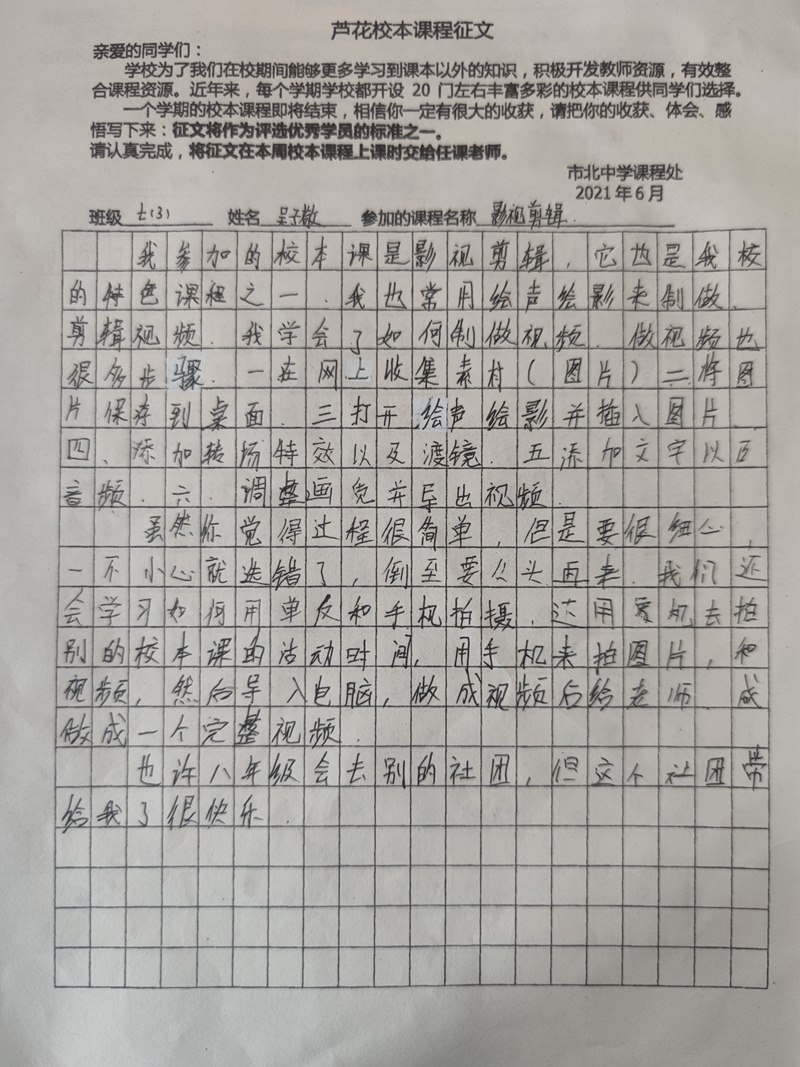 芦花校本课程征文
亲爱的同学们：
学校为了我们在校期间能够更多学习到课本以外的知识，积极开发教师资源，有效整
合课程资源。近年来，每个学期学校都开设 20 门左右丰富多彩的校本课程供同学们选择。
一个学期的校本课程即将结束，相信你一定有很大的收获，请把你的收获、体会、感
悟写下来：征文将作为评选优秀学员的标准之一。
请认真完成，将征文在本周校本课程上课时交给任课老师。
市北中学课程处
2021 年 6 月
班级 七(3) 姓名 吴子敬 参加的课程名称 影视剪辑
我参加的校本课是影视剪辑，它也是我校
的特色课程之一．我也常用绘声绘影来制做、
剪辑视频．我学会了如何制做视频．做视频也
很多步骤．一在网上收集素材（图片）二将图
片保存到桌面．三打开绘声绘影并插入图片、
四、添加转场特效以及渡镜．五添加文字以及
音频．六．调整画宽并导出视频．
虽然你觉得过程很简单，但是要很细心，
一不小心就选错了，倒至要从头再来．我们还
会学习如何用单反和手机拍摄．
别的校本课的活动时间，用手机来拍图片，和
视频，然后导入电脑，做成视频后给老师．成
做成一个完整视频．
也许八年级会去别的社团，但这个社团带
给我了很快乐．